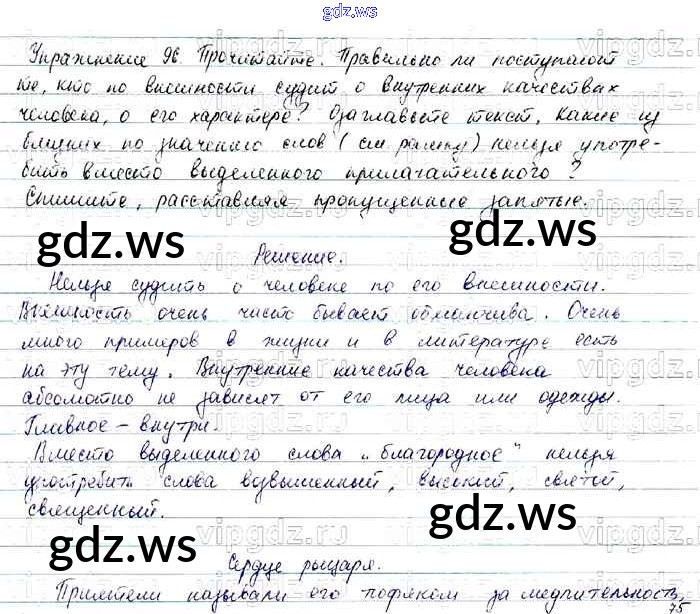 gdz.ws
Упражнение 96. Прочитайте. Правильно ли поступают
те, кто по внешности судит о внутренних качествах
человека, о его характере? Озаглавьте текст. Какие из
близких по значению слов (см рамку) нельзя употре-
бить вместо выделенного прилагательного?
Спишите, расставляя пропущенные запятые.
gdz.ws
gdz.ws
Решение.
Нельзя судить о человеке по его внешности.
Внешность очень часто бывает обманчива. Очень
много примеров в жизни и в литературе есть
на эту тему. Внутренние качества человека
абсолютно не зависят от его лица или одежды.
Главное – внутри.
Вместо выделенного слова „благородное" нельзя
употребить слова возвышенный, высокий, святой,
священный.
gdz.ws
gdz.ws
Сердце рыцаря.
Приятели называли его тюфяком за медлительность,
75